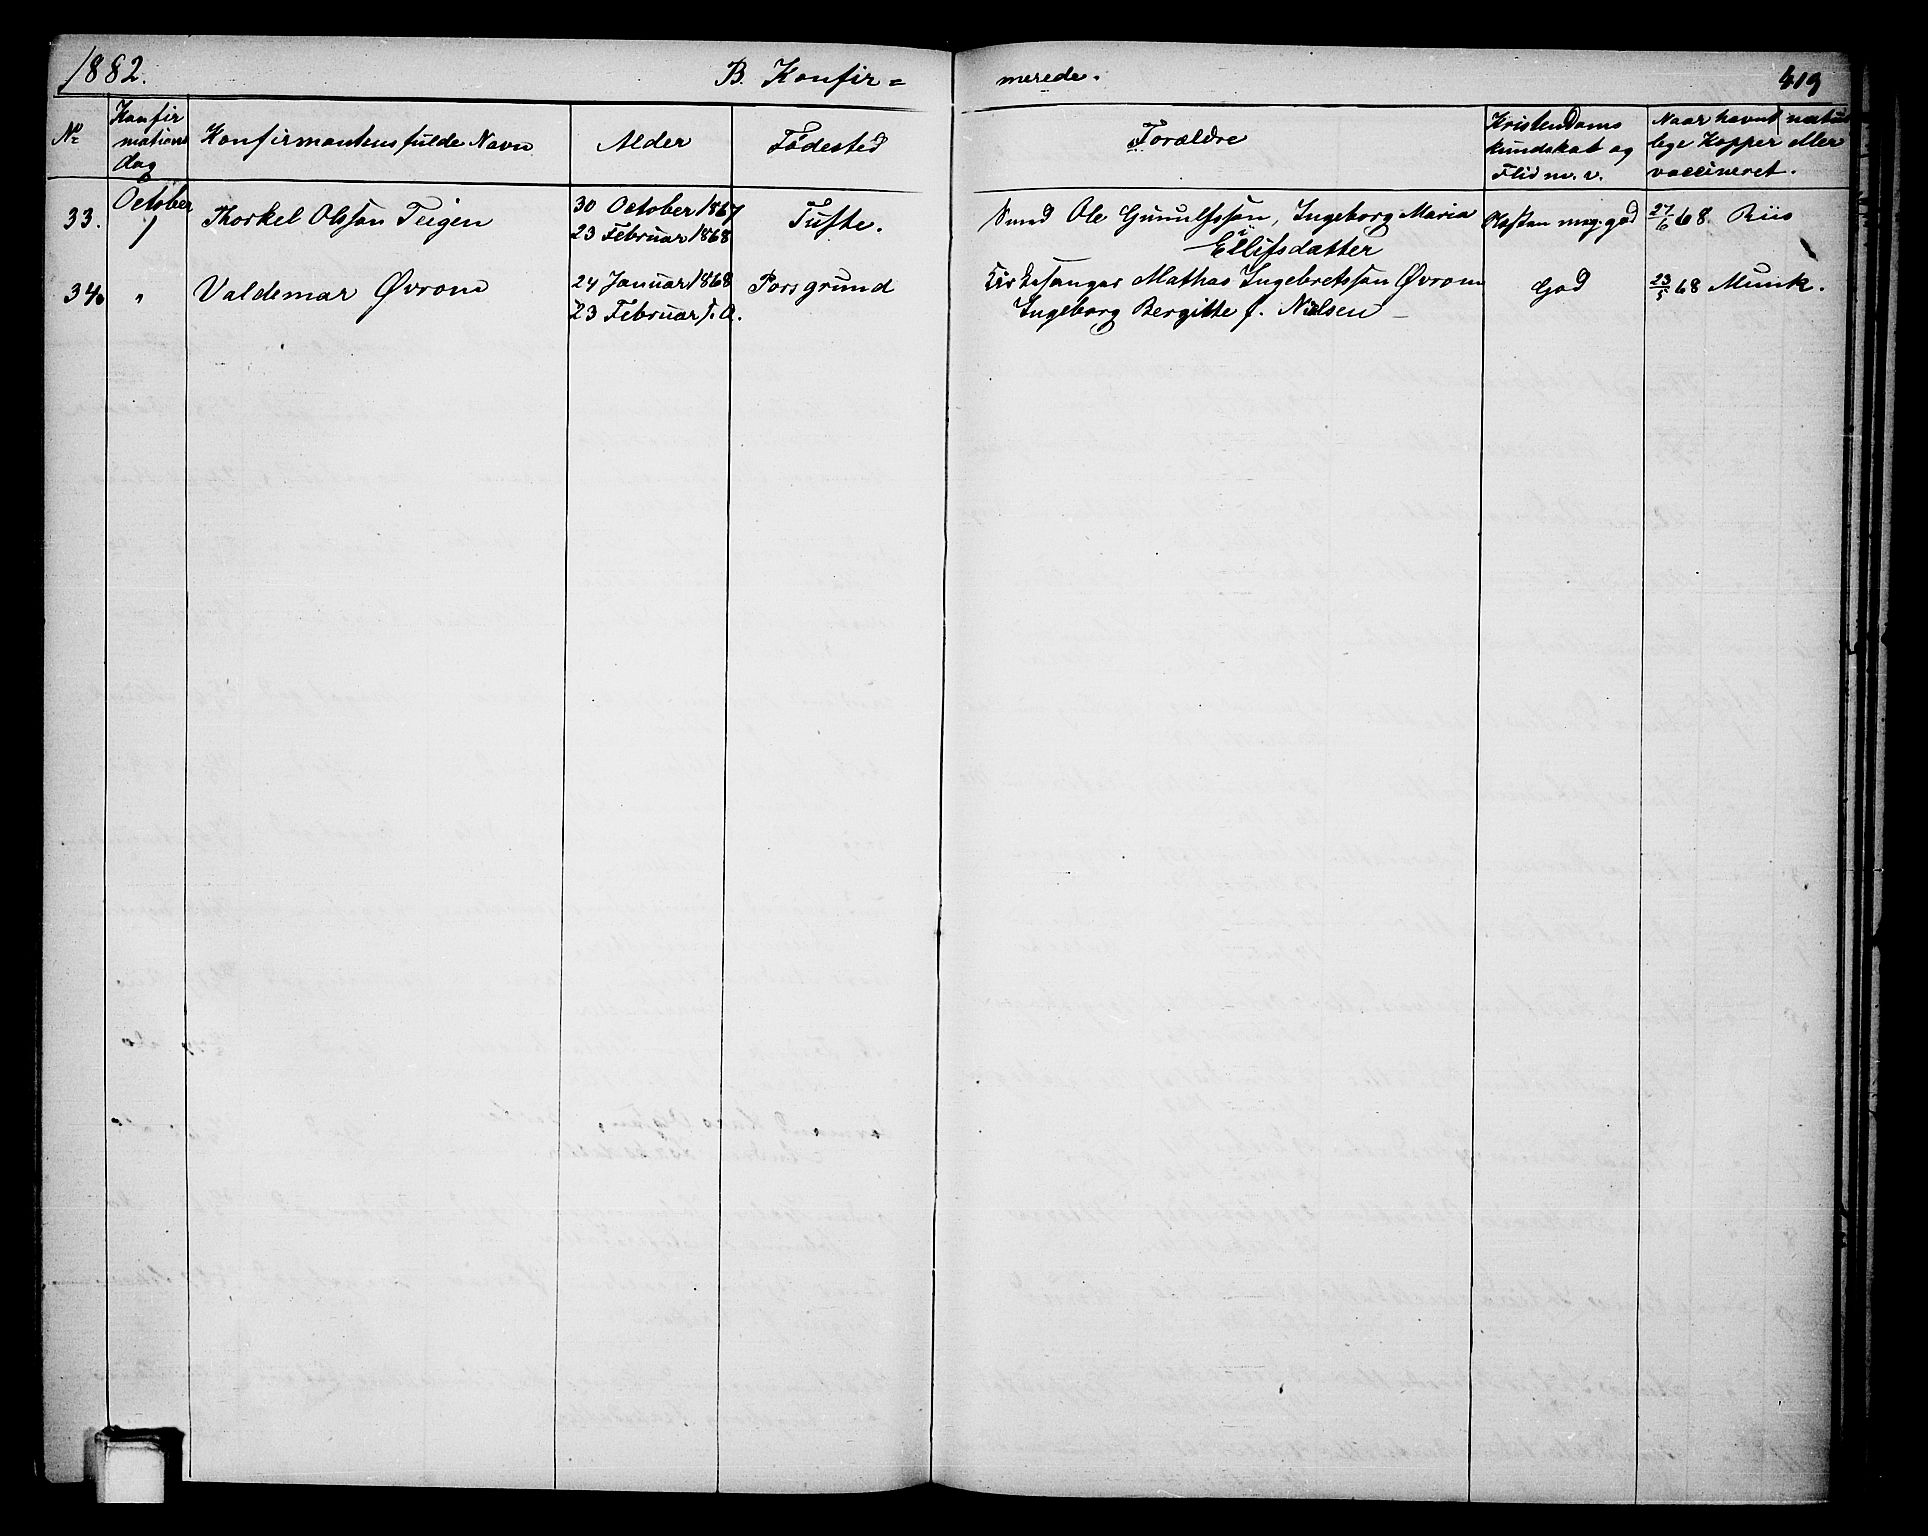 1882. B. Konfir= merede. 419
No Konfirmations dag Konfirmantens fulde Navn Alder Födested Forældre Kristendoms kundskab og Flid m. v. Naar havnt naturlige Kopper eller vaccineret.
October
33. 1 Thorkel Olsson Teigen 30 October 1867 Tufte. Smed Ole Gunulfsson, Ingeborg Maria Næsten meg. god 27/6 68. Riis
23 Februar 1868 Ellifsdatter
34. " Valdemar Øvrom 24 Januar 1868 Porsgrund Kirkesanger Mathas Ingebretsson Øvrom God 23/5 68 Munk.
23 Februar s. A. Ingeborg Bergitte f. Nielsen